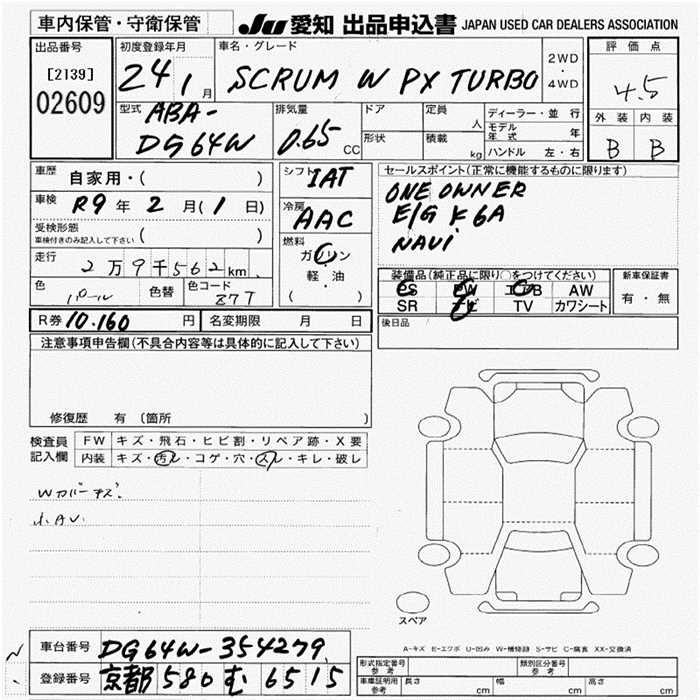 車内保管・守衛保管 JU 愛知 出品申込書 JAPAN USED CAR DEALERS ASSOCIATION
出品番号 初度登録年月 車名・グレード 2WD・4WD 評価点
[2139] 24年 1月 SCRUM W PX TURBO 4.5
02609
型式 ABA-DG64W 排気量 0.65 CC ドア 定員 人 ディーラー・並行 外装 内装
形状 積載 kg モデル年式 年 B B
ハンドル 左・右
車歴 自家用・( ) シフト IAT セールスポイント(正常に機能するものに限ります)
車検 R9年 2月(1日) 冷房 AAC ONE OWNER
受検形態 ( ) E/G K6A
車検付きのみ記入して下さい 燃料 NAVi
走行 2万9千562km ガソリン
軽・油 装備品(純正品に限り○をつけてください) 新車保証書
色 パール 色替 色コード Z7T ( ) PS PW エアB AW 有・無
SR ナビ TV カワシート
R券 10.160 円 名変期限 月 日 後日品
注意事項申告欄(不具合内容等は具体的に記入して下さい)
修復歴 有 (箇所
検査員記入欄 FW キズ・飛石・ヒビ割・リペア跡・X要
内装 キズ・汚レ・コゲ・穴・スレ・キレ・破レ
Wカバーキズ
スペア
A-キズ E-エクボ U-凹み W-補修跡 S-サビ C-腐食 XX-交換済
車台番号 DG64W-354279
登録番号 京都 580 む 6515
形式指定番号 参考 類別区分番号 参考
車庫証明用 参考 長さ cm 幅 cm 高さ cm